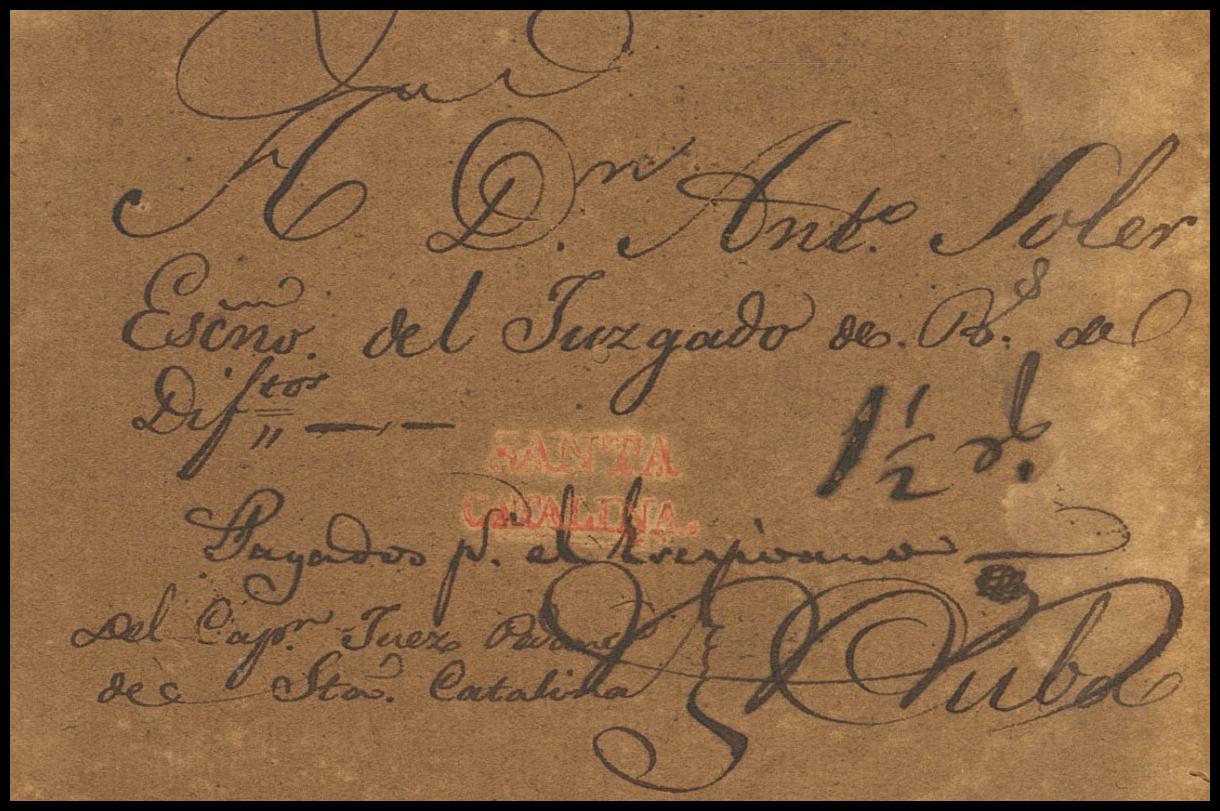 A Dn. Anto. Soler
Escno. del Juzgado de Bs. de
Diftos
1 1/2 rl.
SANTA
CATALINA.
Pagados pr. el
Del Capn. Juez
de Sta. Catalina
Cuba